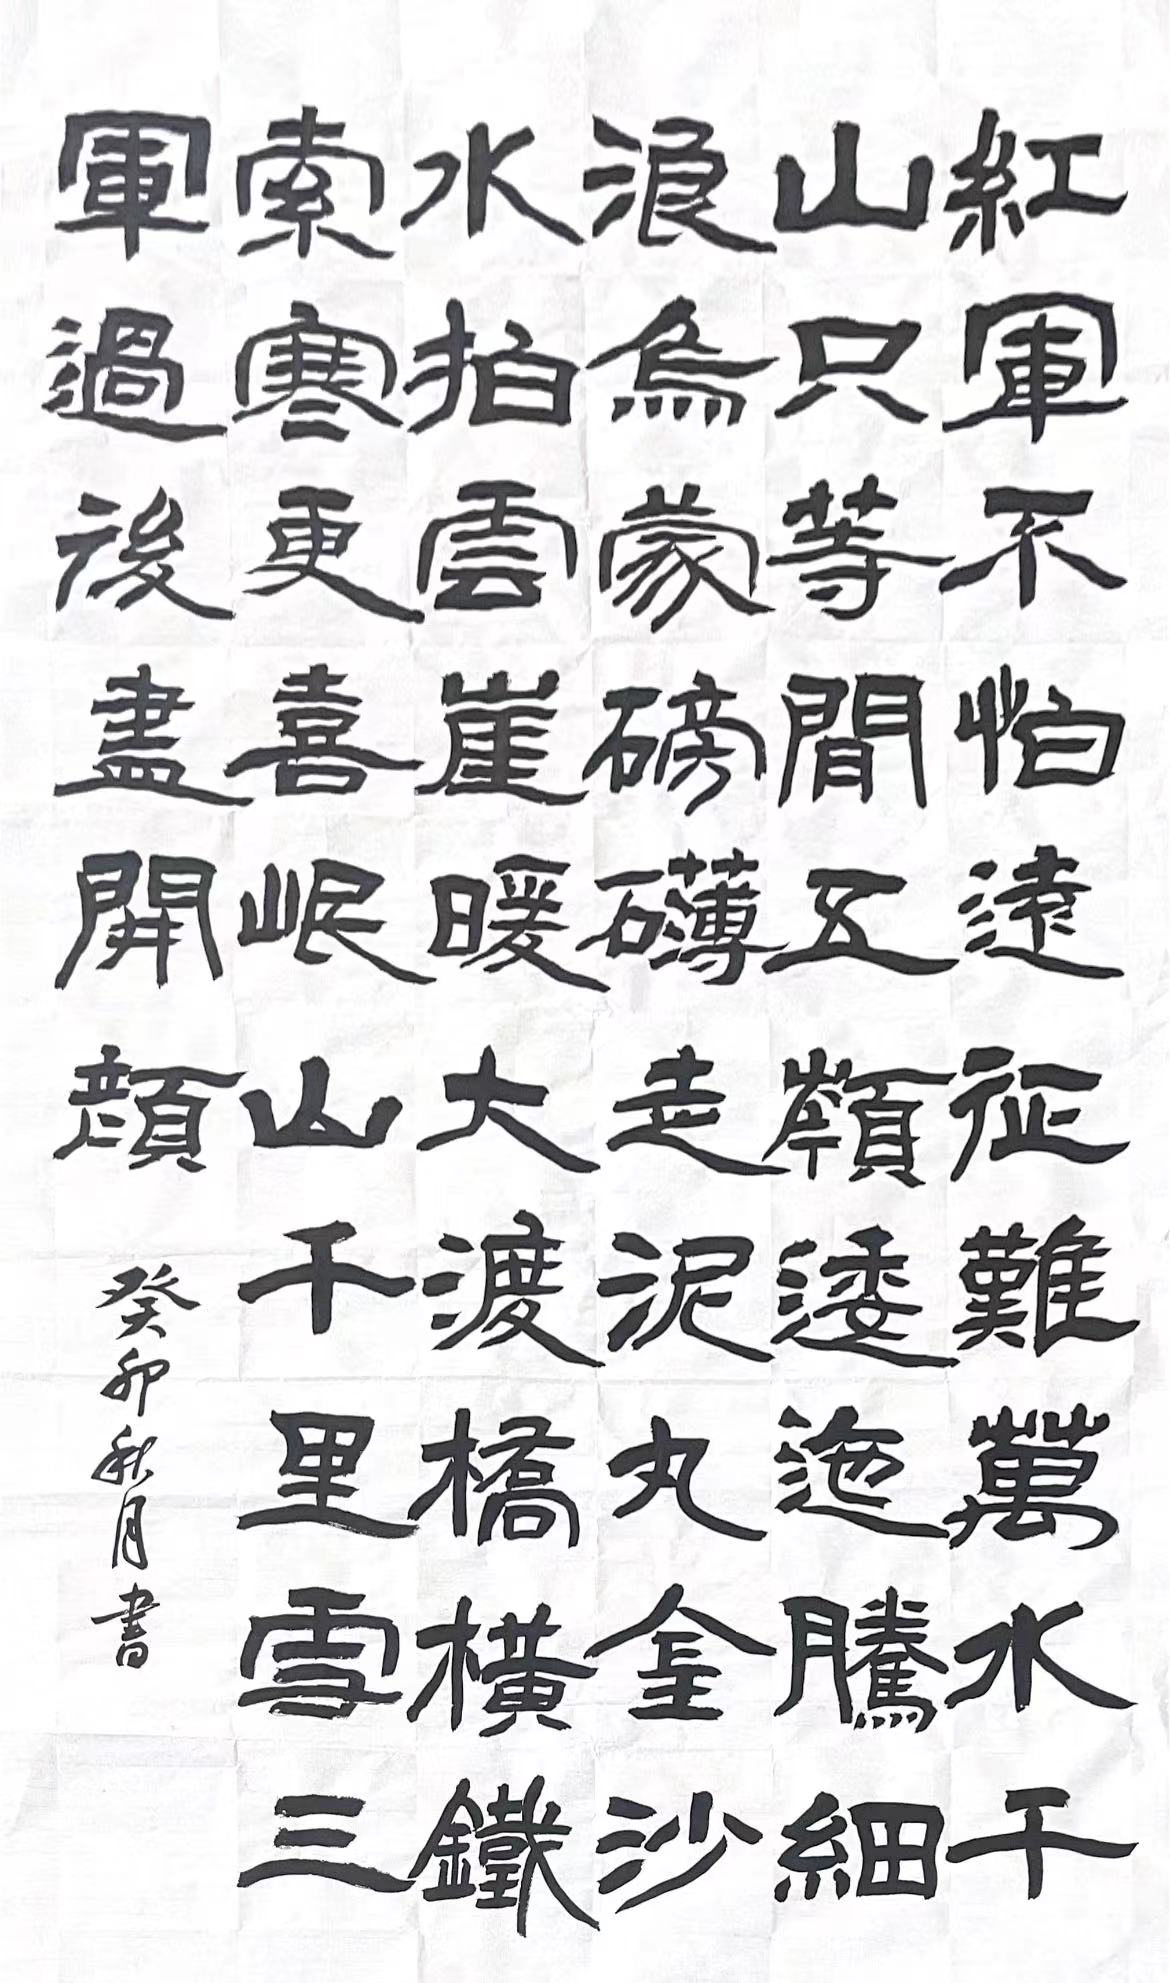 紅軍不怕遠征難萬水千
山只等間五嶺逶迤騰細
浪烏蒙磅礴走泥丸金沙
水拍雲崖暖大渡橋橫鐵
索寒更喜岷山千里雪三
軍過後盡開顏
癸卯秋月書